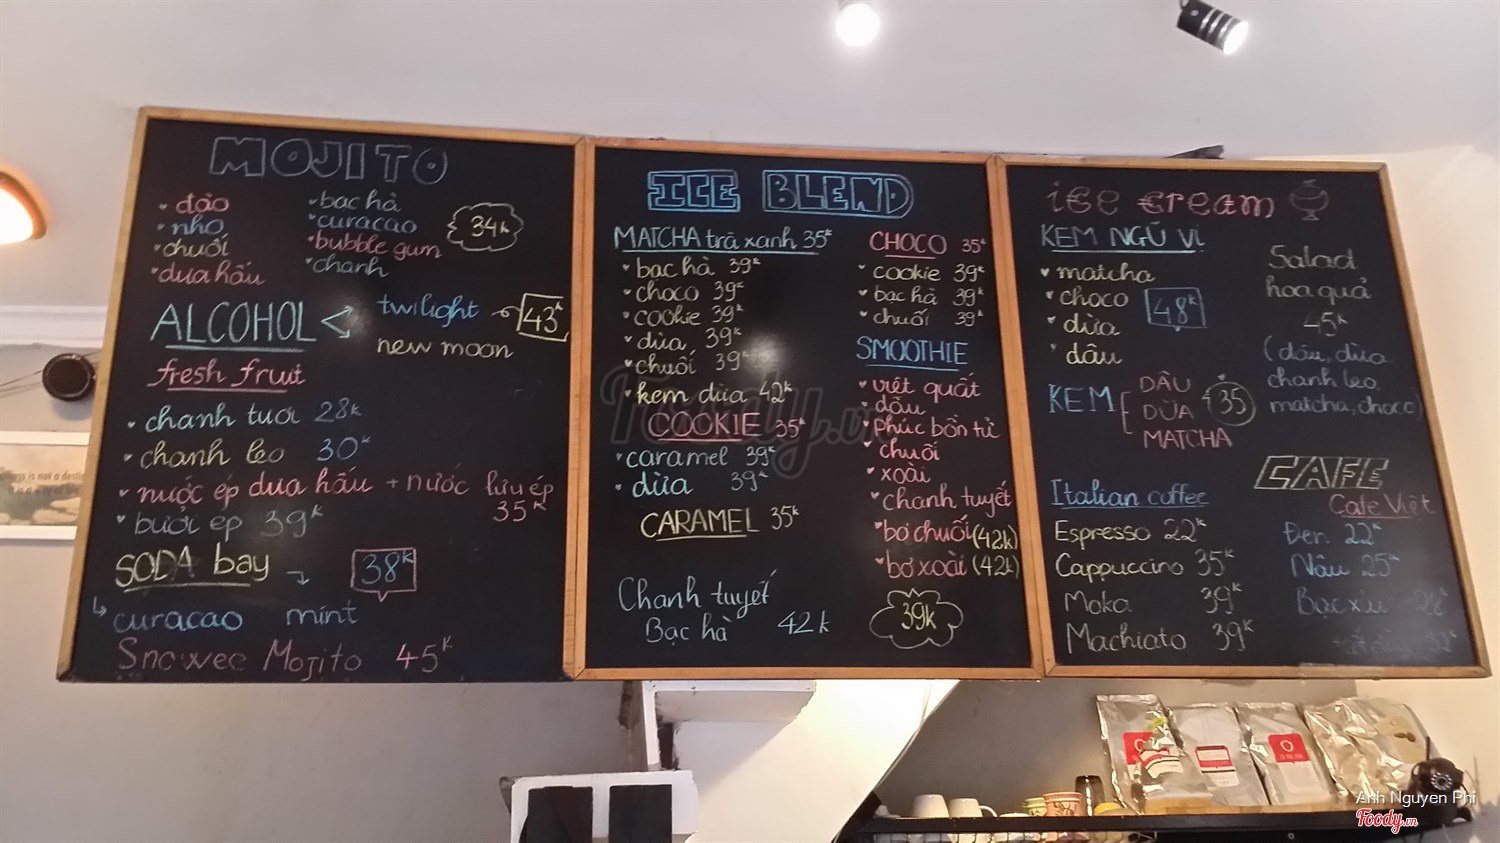 MOJITO
đào
nho
chuối
dưa hấu
bạc hà
curacao
bubble gum
chanh
34k
ALCOHOL <
twilight
new moon
43k
fresh fruit
chanh tươi 28k
chanh leo 30k
nước ép dưa hấu + nước lựu ép
35k
bưởi ép 39k
SODA bay
38k
curacao mint
Snowee Mojito 45k
ICE BLEND
MATCHA trà xanh 35k
bạc hà 39k
choco 39k
cookie 39k
dừa 39k
chuối 39k
kem dừa 42k
COOKIE 35k
caramel 39k
dừa 39k
CARAMEL 35k
Chanh tuyết
Bạc hà 42k
CHOCO 35k
cookie 39k
bạc hà 39k
chuối 39k
SMOOTHIE
việt quất
dâu
phúc bồn tử
chuối
xoài
chanh tuyết
bơ chuối (42k)
bơ xoài (42k)
39k
ice cream
KEM NGŨ VỊ
matcha
choco
dừa
dâu
48k
Salad
hoa quả
45k
(dâu, dừa
chanh leo
matcha, choco)
KEM
DÂU
DỪA
MATCHA
35
CAFE
Italian coffee
Espresso 22k
Cappuccino 35k
Moka 39k
Machiato 39k
Cafe Việt
Đen 22k
Nâu 25k
Bạc xỉu 28k
Foody.vn
Anh Nguyen Phi
Foody.vn